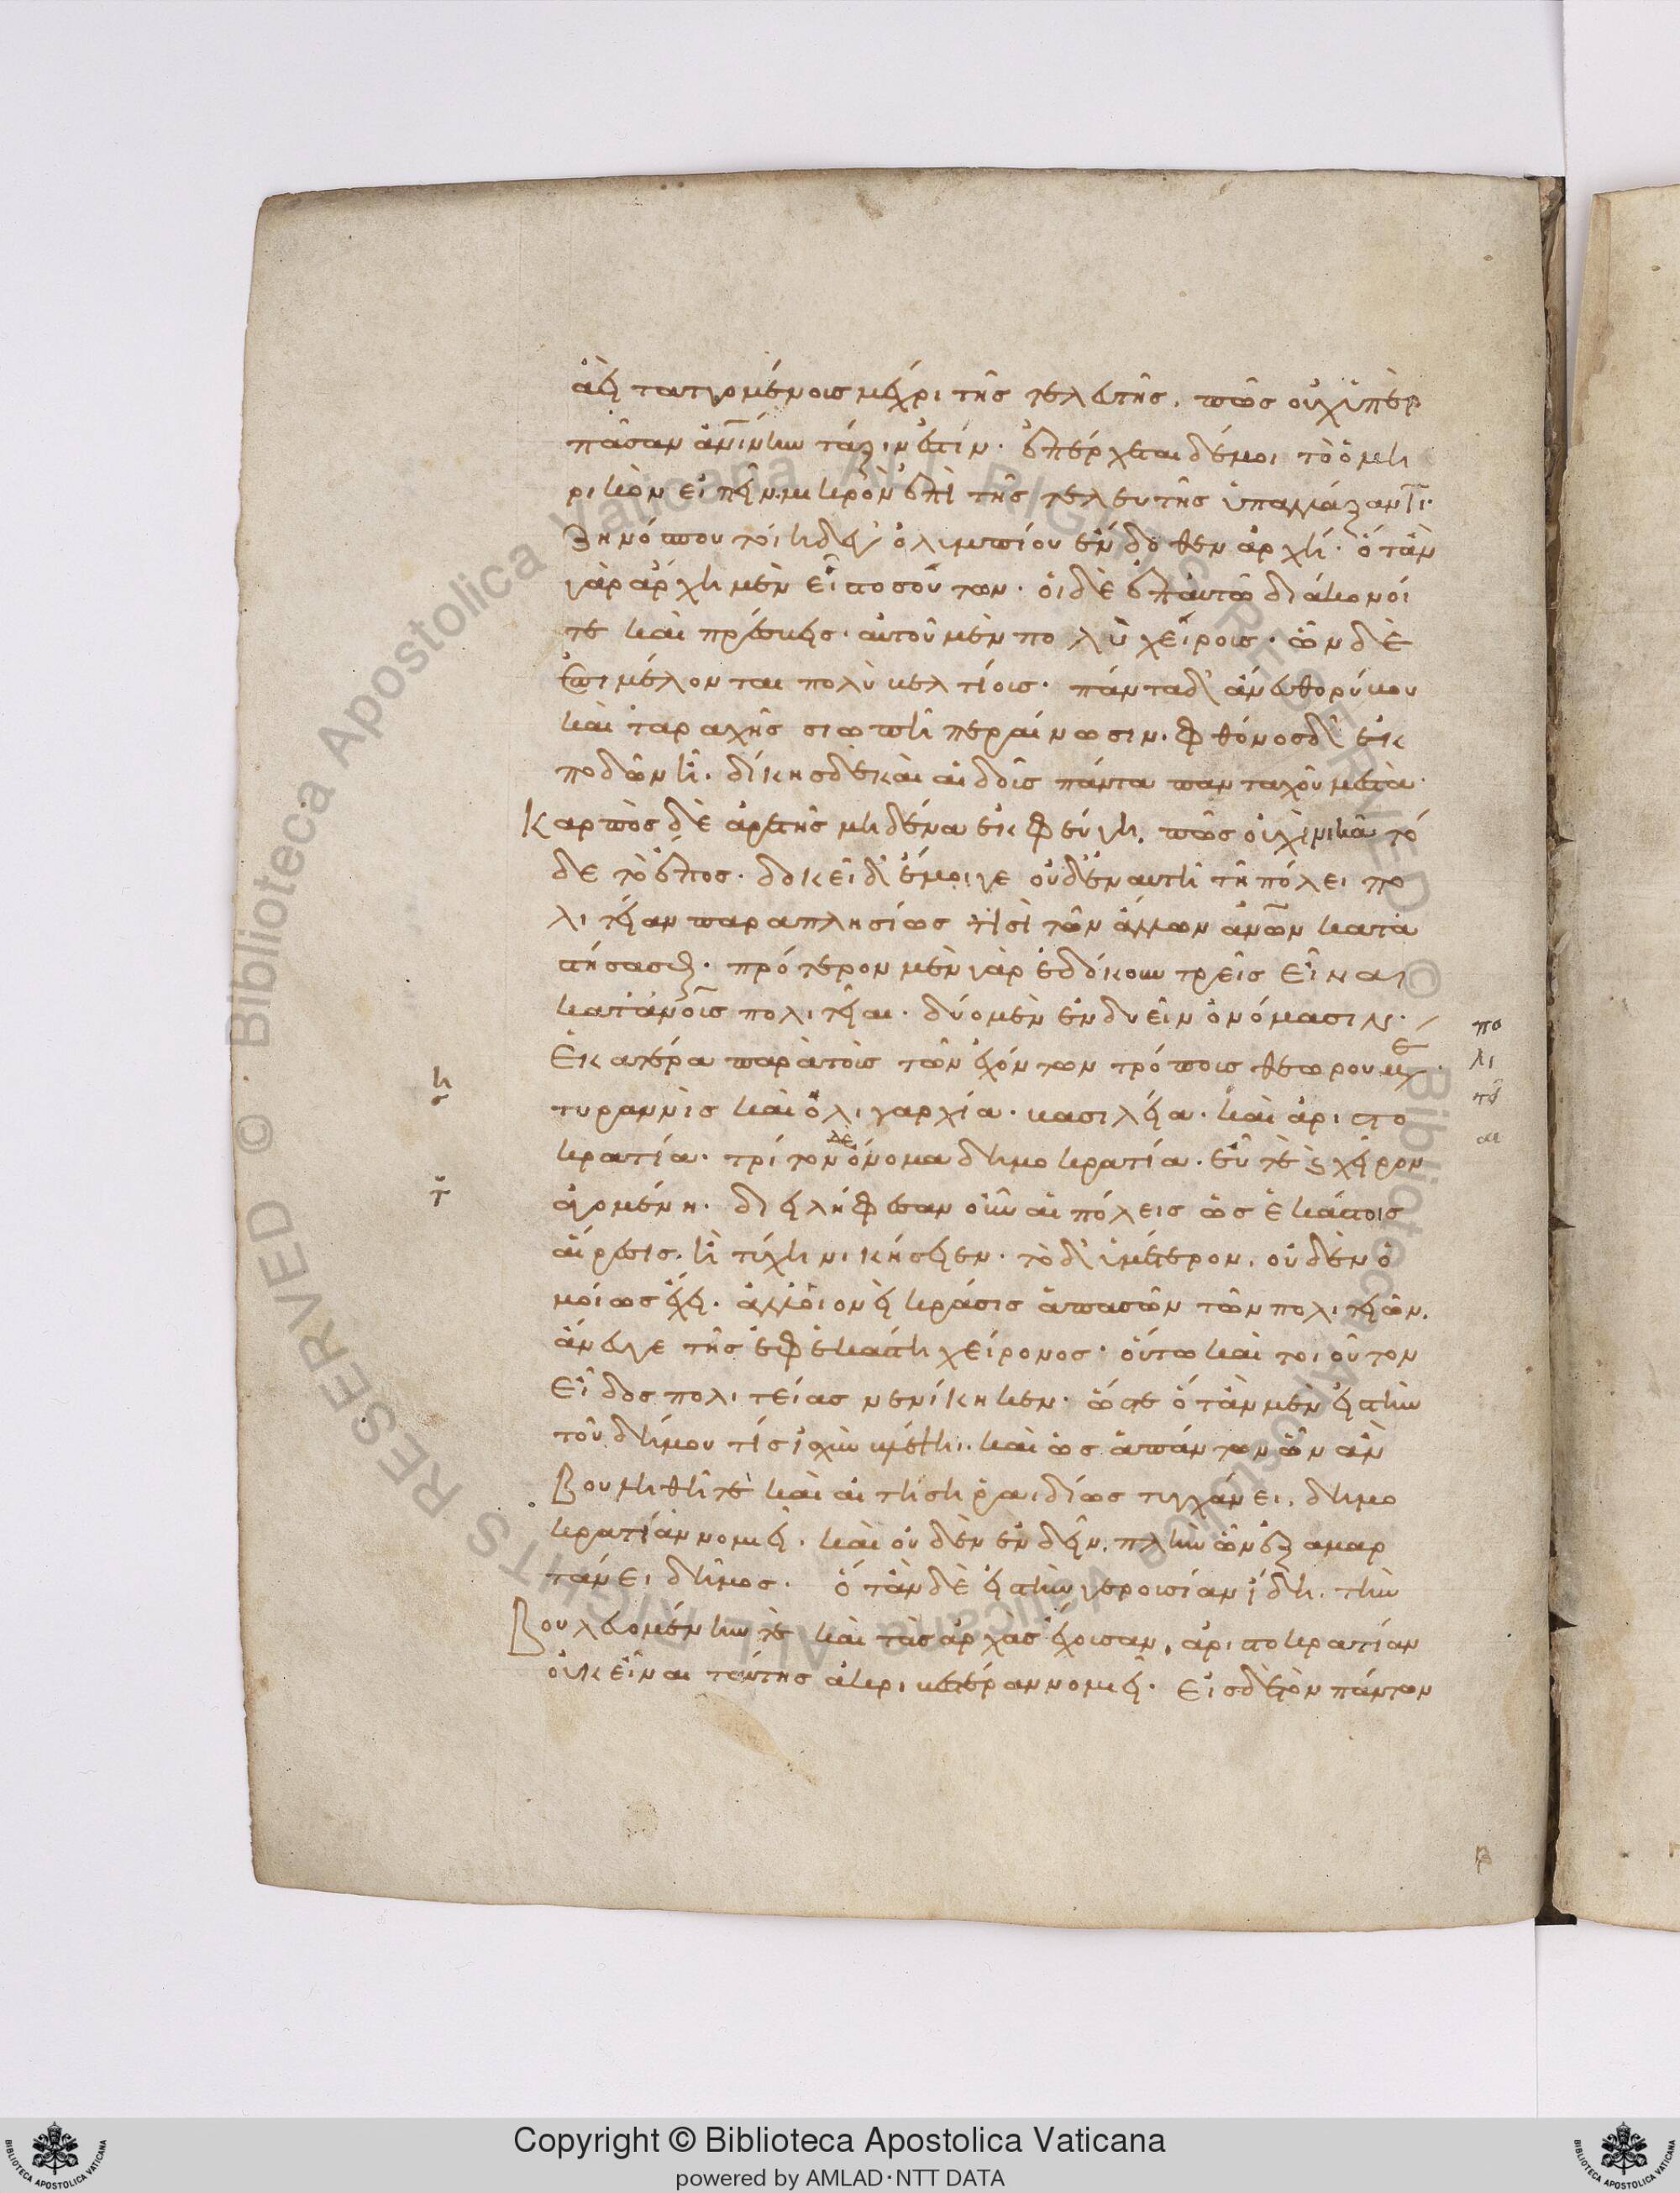 ἀεὶ ταττομένοις μέχρι τῆς τελευτῆς. πῶς οὐχ ὑπὲρ
πᾶσαν ἀνίνην τάξιν ἐστίν. ἐπέρχεται δέ μοι τὸ ὁμη
ρικὸν εἰπεῖν. μικρὸν ἐπὶ τῆς τελευτῆς ὑπαλλάξαντι.
Ζηνός που τοιήδε γ' ὀλυμπίου ἔνδοθεν ἀρχή. ὅταν
γὰρ ἄρχη μὲν εἷς τοσούτων. οἱ δὲ ἐπ' αὐτῶ διάκονοί
τε καὶ πρέσβεις. αὐτοῦ μὲν πολὺ χείρους. ὧν δὲ
ἐπιμέλονται πολὺ βελτίους. πάντα δ' ἄνευ θορύβου
καὶ ταραχῆς σιωπῆ περαίνωσιν. φθόνος δ' ἐκ
ποδὼν ἦ. δίκης δὲ καὶ αἰδοῦς πάντα πανταχοῦ μεστὰ.
Καρπὸς δὲ ἀρετῆς μηδένα ἐκφεύγη. πῶς οὐχὶ νικᾶ τό
δε τὸ ἔπος. δοκεῖ δ' ἔμοιγε οὐδ' ἐν αυτῆ τῆ πόλει πο
λιτείαν παραπλησίως τισὶ τῶν ἄλλων ἀνῶν κατα
στήσασθαι. πρότερον μὲν γὰρ ἐδόκουν τρεῖς εἶναι
κατ' ἀνοὺς πολιτεῖαι. δύο μὲν ἐν δυεῖν ὀνόμασιν.
Ἑκατέρα παρὰ τοὺς τῶν ἐχόντων τρόπους θεωρουμεν
τυραννὶς καὶ ὀλιγαρχία. βασιλεία. καὶ ἀριστο
κρατία. τρίτον δε ὄνομα δημοκρατία. εὖ τε καὶ χεῖρον
ἀγομένη. διειλήφεσαν οὖν αἱ πόλεις ὡς ἑκάστοις
αἵρεσις. ἢ τύχη νικήσειεν. τὸ δ' ὑμέτερον. οὐδὲν ὁ
μοίως ἔχει. ἀλλ' οἱονεὶ κράσις ἁπασῶν τῶν πολιτειῶν.
ἄνευ γε τῆς ἐφ' ἑκάστη χείρονος. οὕτω καὶ τοιοῦτον
εἶδος πολιτείας νενίκηκεν. ὥστε ὅταν μὲν εἰς τὴν
τοῦ δήμου τίς ἰσχὺν βλέπη. καὶ ὡς ἁπάντων ὧν ἂν
Βουληθῆ τε καὶ αἰτήση ῥαιδίως τυγχάνει. δημο
κρατίαν νομιεῖ. καὶ οὐδὲν ἐνδεῖν. πλὴν ὧν ἐξαμαρ
τάνει δῆμος. ὅταν δὲ εἰς τὴν γερουσίαν ἴδη. τὴν
Βουλευομένην τε καὶ τὰς ἀρχὰς ἔχουσαν, ἀριστοκρατίαν
οὐκ εἶναι ταύτης ἀκριβεστέραν νομιεῖ. εἰς δὲ τὸν πάντων
πο
λι
τεῖ
αι